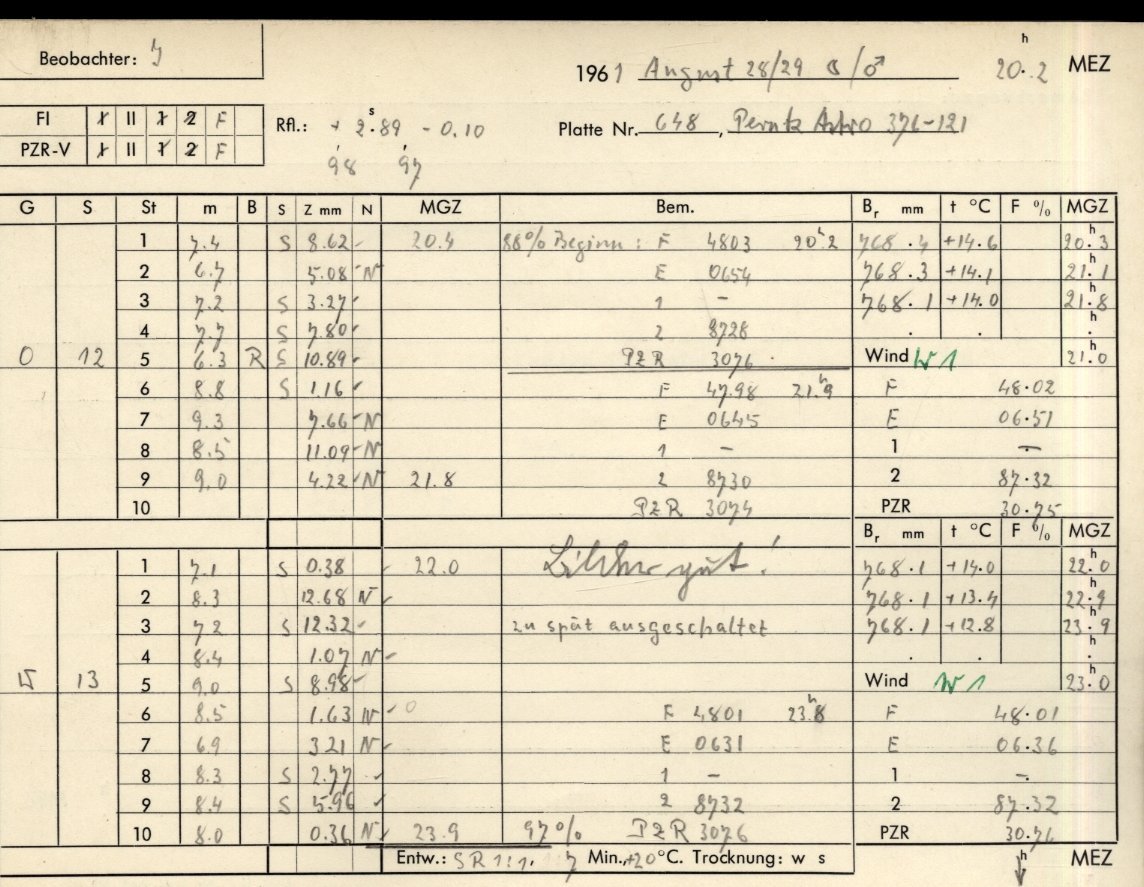 Beobachter: y
1961 August 28/29 ☾/♂ 20.ʰ2 MEZ
Fl 1 II 1 2 F
PZR-V 1 II 1 2 F
Rfl.: + 2.ˢ89 - 0.10
98 97
Platte Nr. 648, Perutz Astro 376-121
G S St m B S Z mm N MGZ Bem. Bᵣ mm t °C F % MGZ
1 7.4 S 8.62 20.4 88% Beginn: F 4803 20ʰ2 768.4 +14.6 20.ʰ3
2 6.7 5.08 N E 0654 768.3 +14.1 21.ʰ1
3 7.2 S 3.27 1 - 768.1 +14.0 21.ʰ8
4 7.7 S 7.80 2 8728 . . .ʰ
0 12 5 6.3 R S 10.89 PZR 3076 Wind W 1 21.ʰ0
6 8.8 S 1.16 F 47.98 21.ʰ9 F 48.02
7 9.3 7.66 N E 0645 E 06.51
8 8.5 11.09 N 1 - 1 -
9 9.0 4.22 N 21.8 2 8730 2 87.32
10 PZR 3074 PZR 30.75
Bᵣ mm t °C F % MGZ
1 7.1 S 0.38 22.0 gut! 768.1 +14.0 22.ʰ0
2 8.3 12.68 N 768.1 +13.4 22.ʰ9
3 7.2 S 12.32 zu spät ausgeschaltet 768.1 +12.8 23.ʰ9
4 8.4 1.07 N . . .ʰ
15 13 5 9.0 S 8.98 Wind W 1 23.ʰ0
6 8.5 1.63 N 0 F 4801 23.ʰ8 F 48.01
7 6.9 3.21 N E 0631 E 06.36
8 8.3 S 2.77 1 - 1 -.
9 8.4 S 5.96 2 8732 2 87.32
10 8.0 0.36 N 23.9 97% PZR 3076 PZR 30.76
Entw.: SR 1:1. 7 Min., +20°C. Trocknung: w s ʰ MEZ